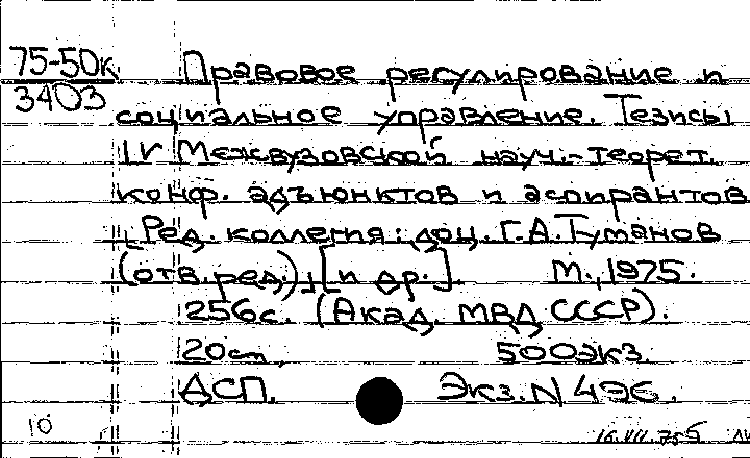 75-50к
3403
Правовое регулирование и
социальное управление. Тезисы
IV Межвузовской науч.-теорет.
конф. адъюнктов и аспирантов
[Ред. коллегия: доц. Г.А. Туманов
(отв. ред.)][и др.]. М., 1975.
256с. (Акад. МВД СССР).
20см, 500экз.
ДСП. Экз. N 496.
10